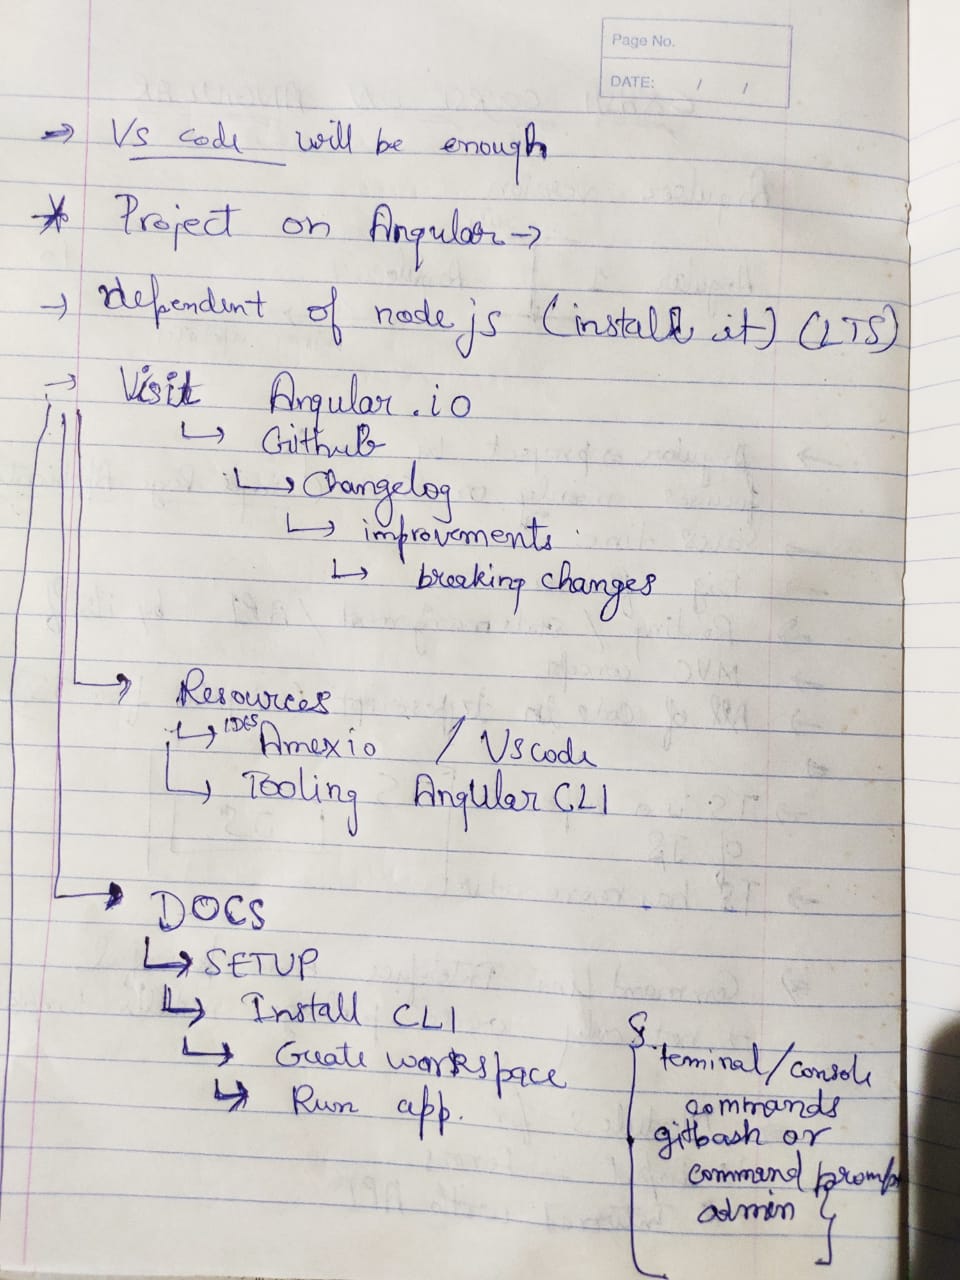 Page No.
DATE: / /
→ Vs code will be enough
* Project on Angular →
→ dependent of node js (install it) (LTS)
→ Visit Angular.io
↳ Github
↳ Changelog
↳ improvements
↳ breaking changes
→ Resources
↳ IDES Amexio / Vscode
↳ Tooling Angular CLI
→ DOCS
↳ SETUP
↳ Install CLI
↳ Create workspace
↳ Run app.
teminal/console
commands
gitbash or
command prompt
admin